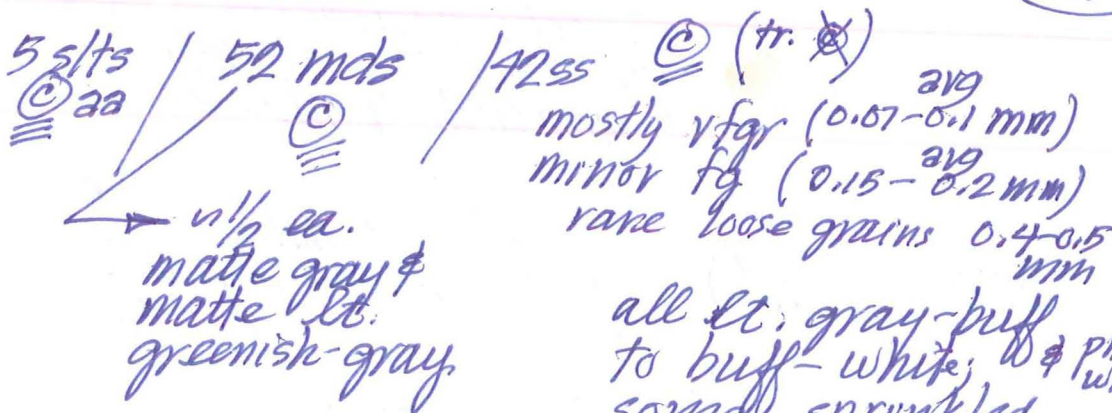 5 slts / 52 mds / 42ss © (tr. ©)
© aa
©
mostly vfgr (0.07-0.1 mm) avg
minor fg (0.15-0.2 mm) avg
rare loose grains 0.4-0.5 mm
~1/2 ea.
matte gray &
matte lt.
greenish-gray
all lt. gray-buff
to buff-white; &
some sprinkled